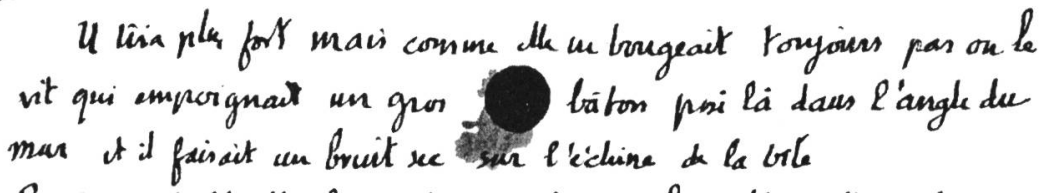 Il tira plus fort mais comme elle ne bougeait toujours pas on le
vit qui empoignait un gros bâton posé là dans l'angle du
mur et il faisait un bruit sec sur l'échine de la bête